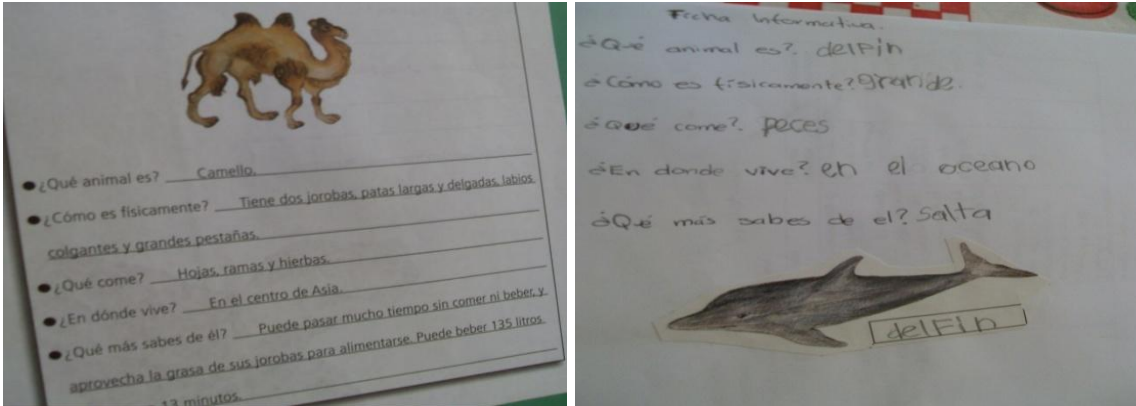 ¿Qué animal es? Camello.
¿Cómo es físicamente? Tiene dos jorobas, patas largas y delgadas, labios
colgantes y grandes pestañas.
¿Qué come? Hojas, ramas y hierbas.
¿En dónde vive? En el centro de Asia.
¿Qué más sabes de él? Puede pasar mucho tiempo sin comer ni beber, y
aprovecha la grasa de sus jorobas para alimentarse. Puede beber 135 litros
13 minutos.
Ficha informativa.
¿Qué animal es? delFin
¿Cómo es físicamente? grande.
¿Qué come? peces
¿En donde vive? en el oceano
¿Qé más sabes de el? Salta
delFin